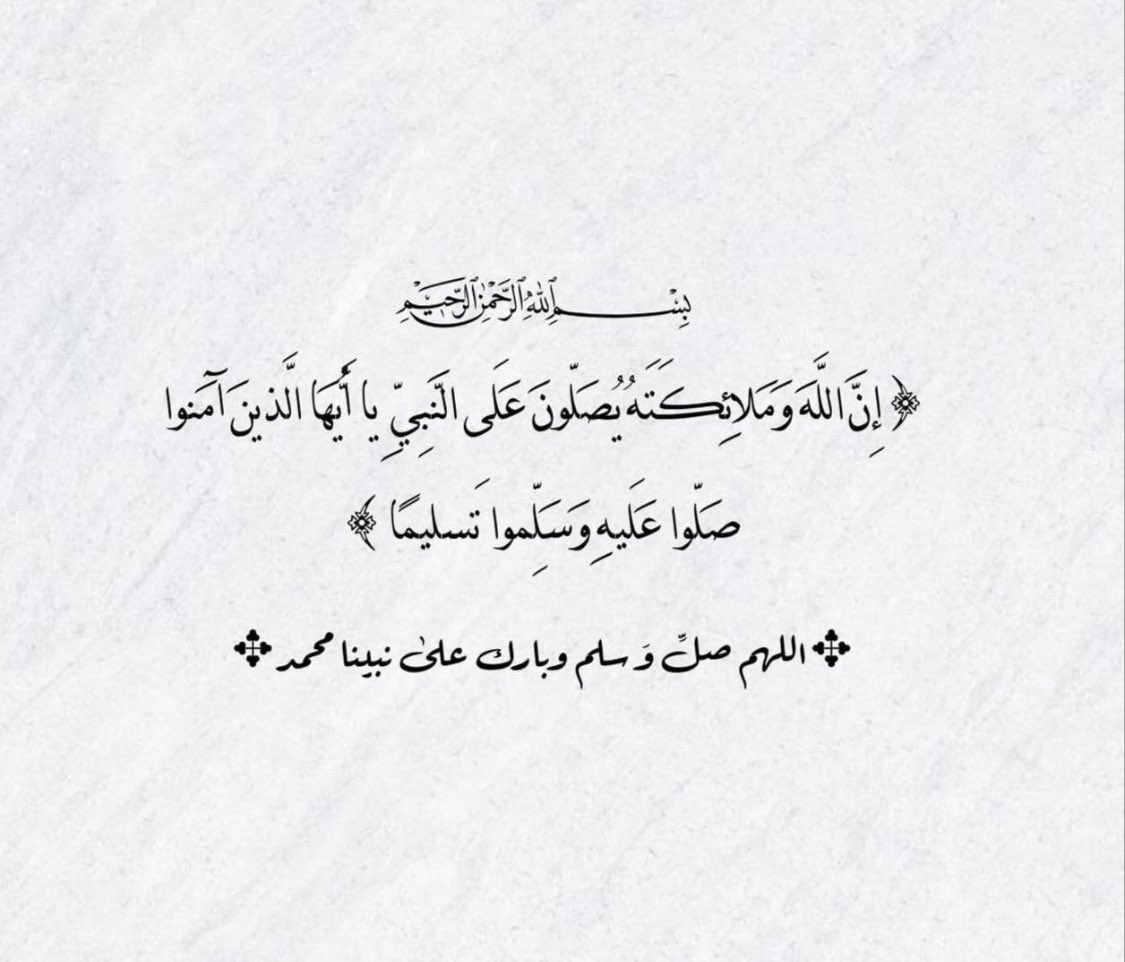 بِسْمِ ٱللَّهِ ٱلرَّحْمَٰنِ ٱلرَّحِيمِ
﴿ إِنَّ اللَّهَ وَمَلائِكَتَهُ يُصَلّونَ عَلَى النَّبِيِّ يا أَيُّهَا الَّذينَ آمَنوا
صَلّوا عَلَيهِ وَسَلِّموا تَسليمًا ﴾
اللهم صلِّ وَ سلم وبارك علىٰ نبينا محمد